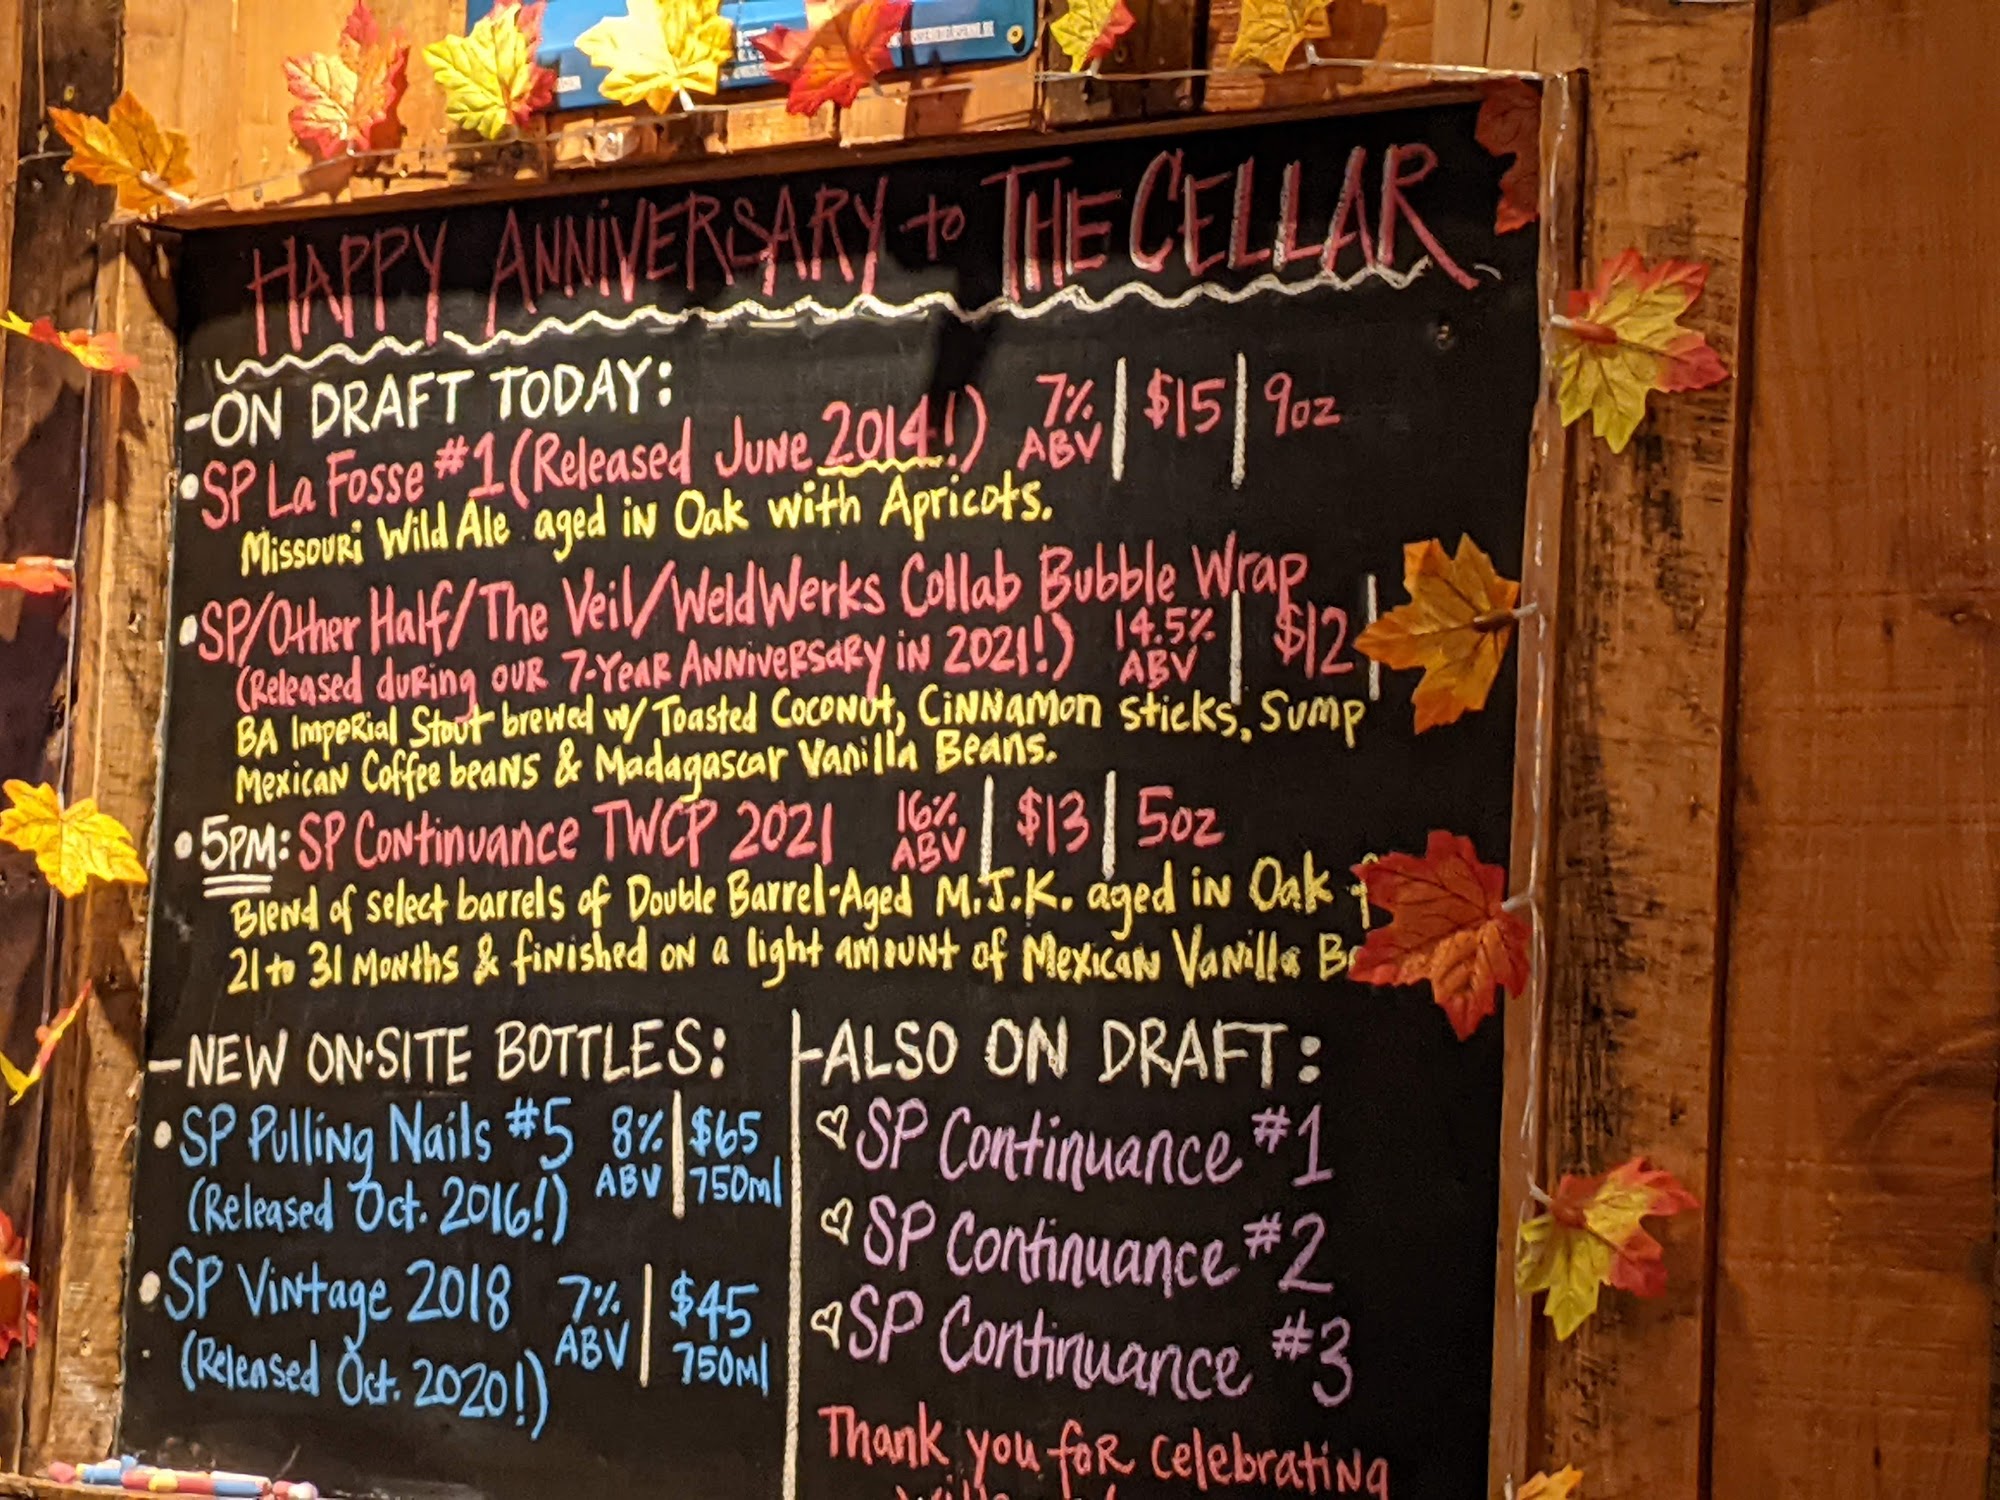 HAPPY ANNIVERSARY to THE CELLAR
-ON DRAFT TODAY:
•SP La Fosse #1 (Released June 2014!) 7% ABV | $15 | 9oz
Missouri Wild Ale aged in Oak with Apricots.
•SP/Other Half/The Veil/WeldWerks Collab Bubble Wrap
(Released during our 7-Year Anniversary in 2021!) 14.5% ABV | $12 |
BA Imperial Stout brewed w/ Toasted Coconut, Cinnamon sticks, Sump
Mexican Coffee beans & Madagascar Vanilla Beans.
•5PM: SP Continuance TWCP 2021 16% ABV | $13 | 5oz
Blend of select barrels of Double Barrel-Aged M.J.K. aged in Oak
21 to 31 Months & finished on a light amount of Mexican Vanilla
-NEW ON-SITE BOTTLES:
•SP Pulling Nails #5 8% ABV | $65
(Released Oct. 2016!) 750ml
•SP Vintage 2018 7% ABV | $45
(Released Oct. 2020!) 750ml
-ALSO ON DRAFT:
♡SP Continuance #1
♡SP Continuance #2
♡SP Continuance #3
Thank you for celebrating